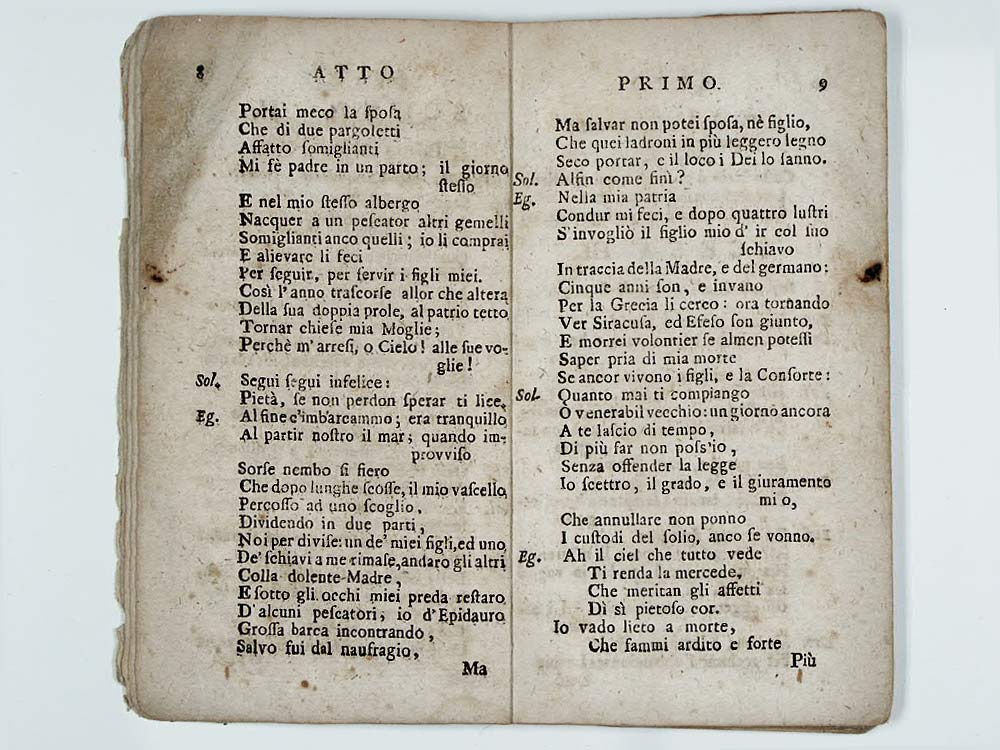 8 ATTO
Portai meco la ſpoſa
Che di due pargoletti
Affatto ſomiglianti
Mi fè padre in un parto; il giorno
ſteſſo
E nel mio ſteſſo albergo
Nacquer a un peſcator altri gemelli
Somiglianti anco quelli; io li comprai
E alievare li feci
Per ſeguir, per ſervir i figli miei.
Così l'anno traſcorſe allor che altera
Della ſua doppia prole, al patrio tetto
Tornar chieſe mia Moglie;
Perchè m'arreſi, o Cielo! alle ſue vo-
glie!
Sol. Segui ſegui infelice:
Pietà, ſe non perdon ſperar ti lice.
Eg. Alfine c'imbarcammo; era tranquillo
Al partir noſtro il mar; quando im-
provviſo
Sorſe nembo ſi fiero
Che dopo lunghe ſcoſſe, il mio vaſcello
Percoſſo ad uno ſcoglio,
Dividendo in due parti,
Noi per diviſe: un de' miei figli, ed uno
De' ſchiavi a me rimaſe, andaro gli altri
Colla dolente Madre,
E ſotto gli occhi miei preda reſtaro
D'alcuni peſcatori; io d'Epidauro
Groſſa barca incontrando,
Salvo fui dal naufragio,
Ma
PRIMO. 9
Ma ſalvar non potei ſpoſa, nè figlio,
Che quei ladroni in più leggero legno
Seco portar, e il loco i Dei lo ſanno.
Sol. Alfin come finì?
Eg. Nella mia patria
Condur mi feci, e dopo quattro luſtri
S'invogliò il figlio mio d' ir col ſuo
ſchiavo
In traccia della Madre, e del germano:
Cinque anni ſon, e invano
Per la Grecia li cerco: ora tornando
Ver Siracuſa, ed Efeſo ſon giunto,
E morrei volontier ſe almen poteſſi
Saper pria di mia morte
Se ancor vivono i figli, e la Conſorte:
Sol. Quanto mai ti compiango
O venerabil vecchio: un giorno ancora
A te laſcio di tempo,
Di più far non poſs'io,
Senza offender la legge
Io ſcettro, il grado, e il giuramento
mio,
Che annullare non ponno
I cuſtodi del ſolio, anco ſe vonno.
Eg. Ah il ciel che tutto vede
Ti renda la mercede,
Che meritan gli affetti
Dì sì pietoſo cor.
Io vado lieto a morte,
Che fammi ardito e forte
Più